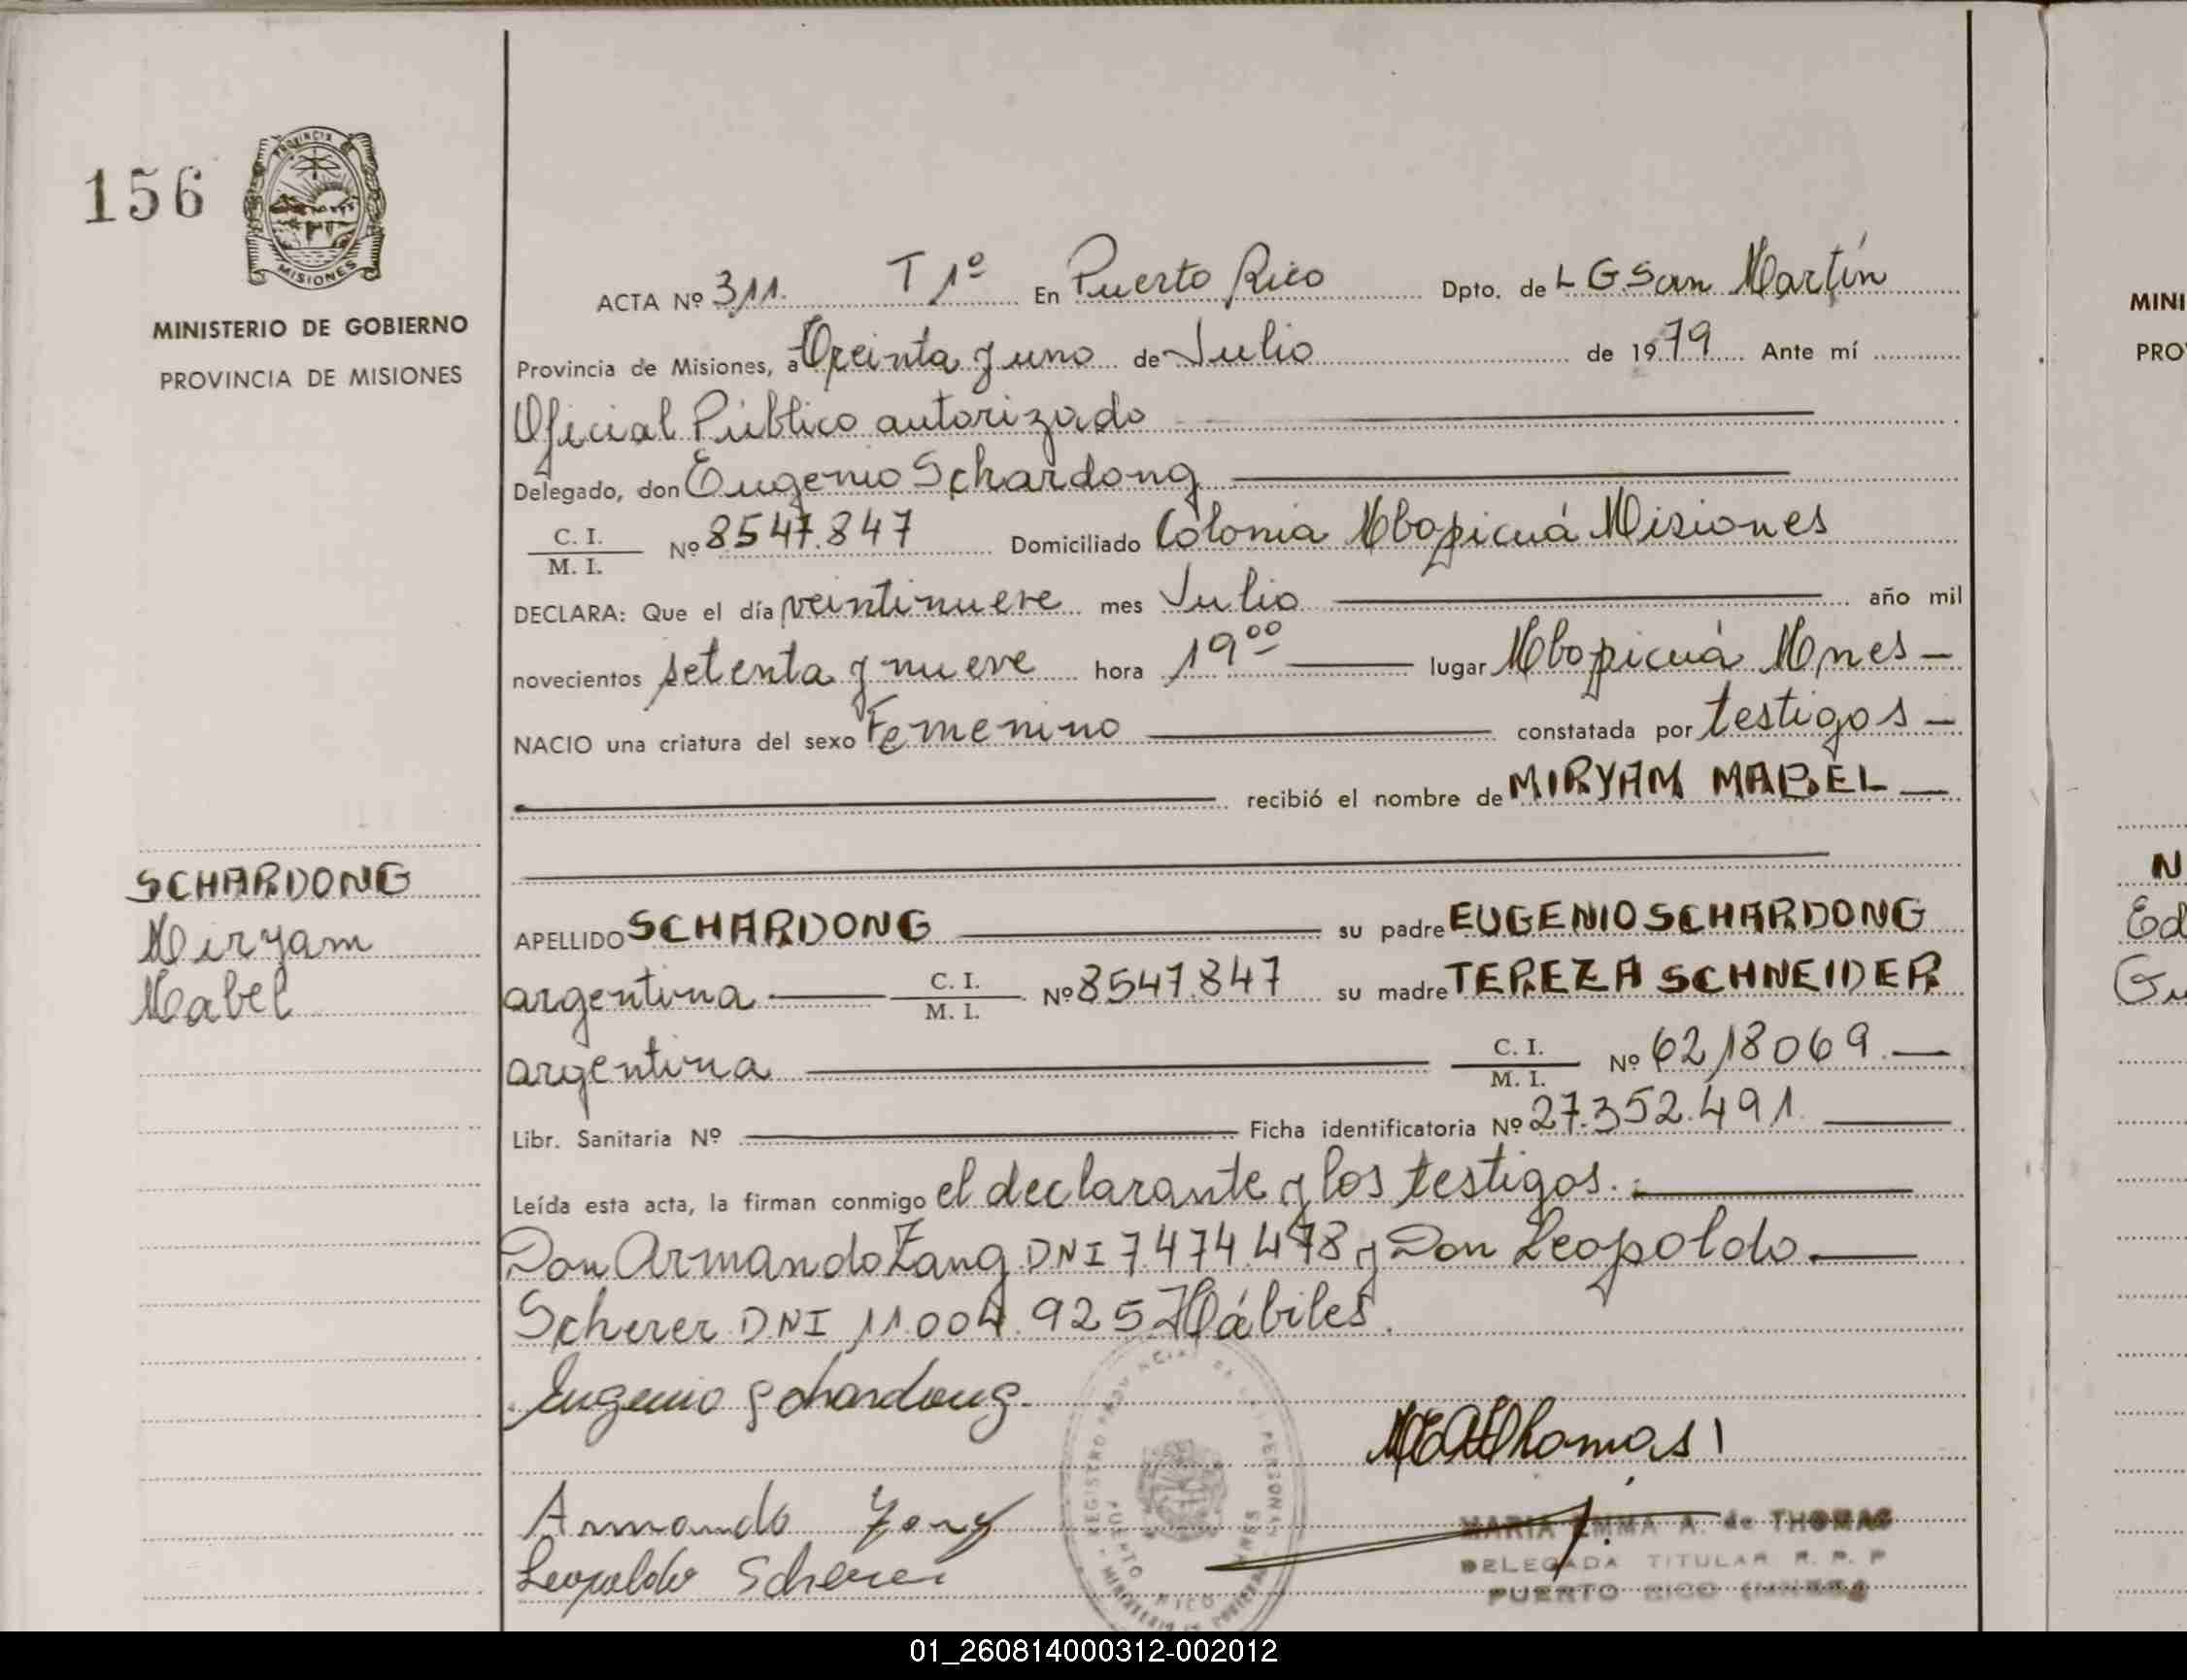 156
PROVINCIA
MISIONES
MINISTERIO DE GOBIERNO
PROVINCIA DE MISIONES
SCHARDONG
Miryam
Mabel
ACTA Nº 311. T 1º En Puerto Rico Dpto. de L G San Martín
Provincia de Misiones, a Treinta y uno de Julio de 1979 Ante mí
Oficial Público autorizado
Delegado, don Eugenio Schardong
C. I.
M. I. Nº 8547.847 Domiciliado Colonia Mbopicuá Misiones
DECLARA: Que el día veintinueve mes Julio año mil
novecientos setenta y nueve hora 19⁰⁰ lugar Mbopicuá Mnes
NACIO una criatura del sexo Femenino constatada por testigos
recibió el nombre de MIRYAM MABEL
APELLIDO SCHARDONG su padre EUGENIO SCHARDONG
argentina C. I. M. I. Nº 8547.847 su madre TEREZA SCHNEIDER
argentina C. I. M. I. Nº 6218069
Libr. Sanitaria Nº Ficha identificatoria Nº 27.352.491
Leída esta acta, la firman conmigo el declarante y los testigos.
Don Armando Zang DNI 7474.478 y Don Leopoldo
Scherer DNI 11.004.925 Hábiles.
Eugenio Schardong
MEAThomas
Armando Zang
Leopoldo Scherer
MARIA EMMA A. de THOMAS
DELEGADA TITULAR R. P. P
PUERTO RICO (MNES)
MINI
PRO
N
Ed
Gu
01_260814000312-002012